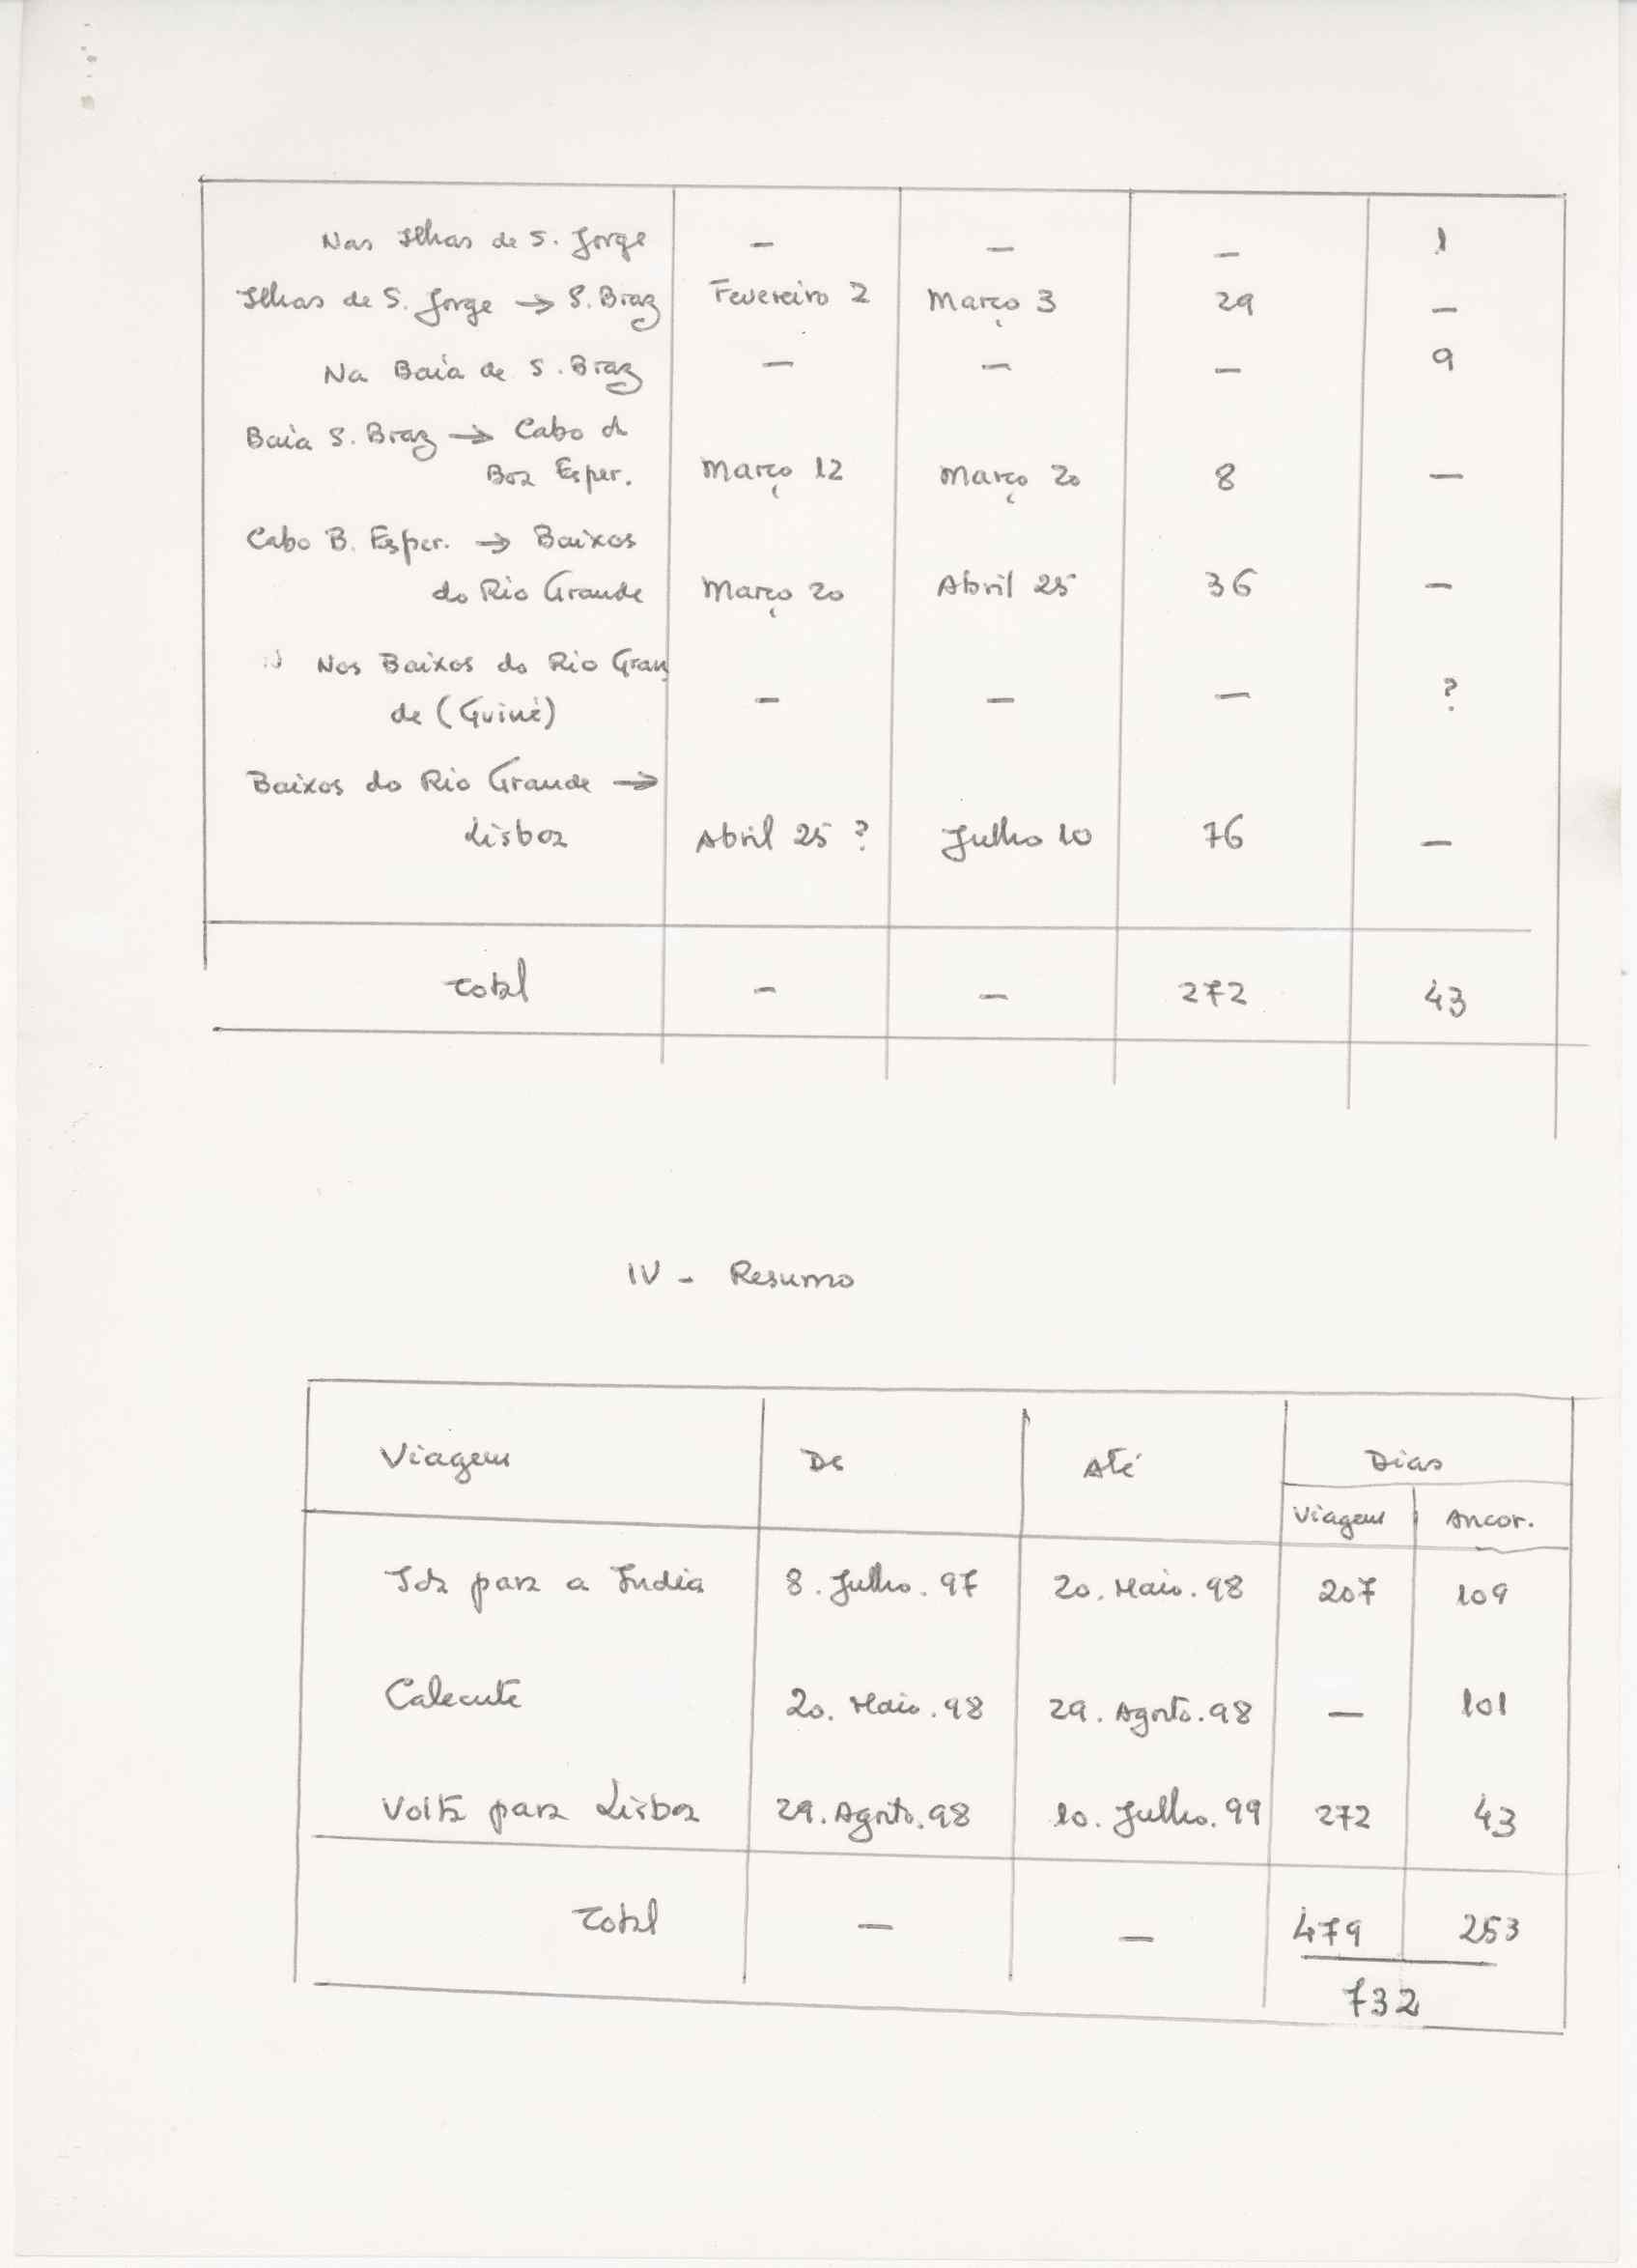 Nas Ilhas de S. Jorge — — — 1
Ilhas de S. Jorge → S. Braz Fevereiro 2 Março 3 29 —
Na Baia de S. Braz — — — 9
Baia S. Braz → Cabo d
Boa Esper. Março 12 Março 20 8 —
Cabo B. Esper. → Baixos
do Rio Grande Março 20 Abril 25 36 —
Nos Baixos do Rio Gran
de (Guiné) — — — ?
Baixos do Rio Grande →
Lisboa Abril 25 ? Julho 10 76 —
Total — — 272 43
IV - Resumo
Viagem De Até Dias
Viagem Ancor.
Ida para a India 8. Julho. 97 20. Maio. 98 207 109
Calecute 20. Maio. 98 29. Agosto. 98 — 101
Volta para Lisboa 29. Agosto. 98 10. Julho. 99 272 43
Total — — 479 253
732